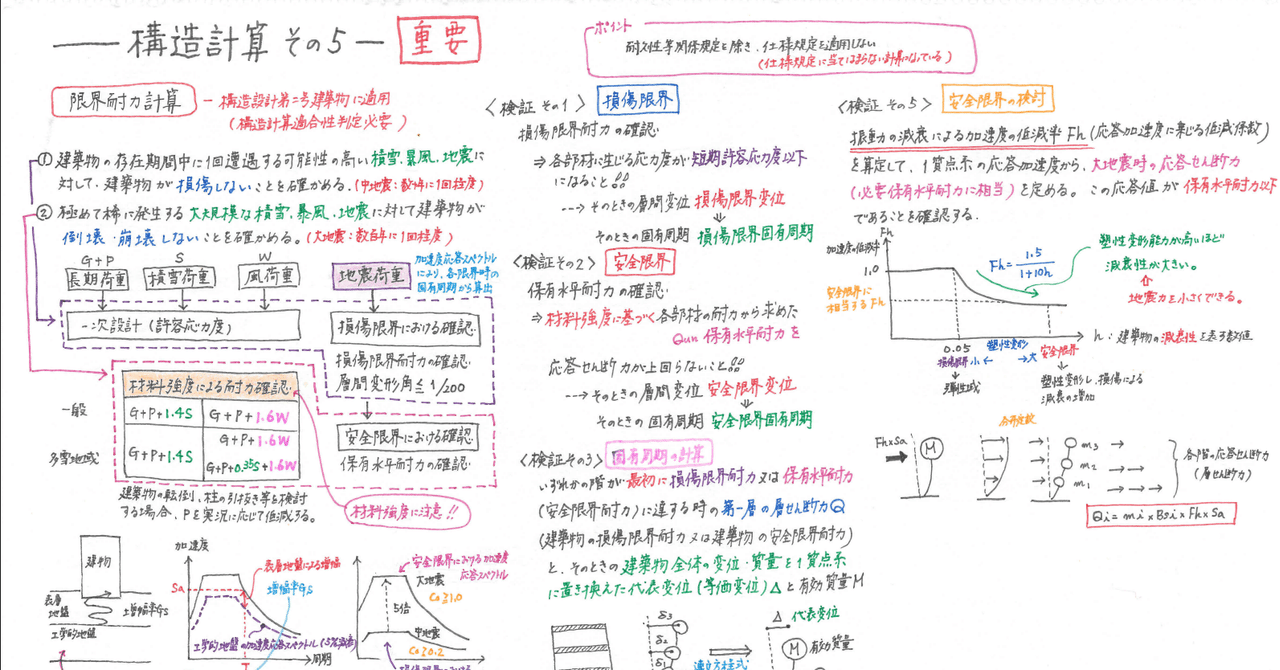 構造計算 その5
重要
ポイント
耐久性等関係規定を除き、仕様規定を適用しない
(仕様規定に当てはまらない計算になっている)
限界耐力計算
構造設計第二号建築物に適用
(構造計算適合性判定必要)
① 建築物の存在期間中に1回遭遇する可能性の高い積雪、暴風、地震に
対して、建築物が損傷しないことを確かめる。(中地震:数十年に1回程度)
② 極めて稀に発生する大規模な積雪、暴風、地震に対して建築物が
倒壊・崩壊しないことを確かめる。(大地震:数百年に1回程度)
G+P
S
W
長期荷重
積雪荷重
風荷重
地震荷重
加速度応答スペクトル
により、各限界時の
固有周期から算出
一次設計(許容応力度)
損傷限界における確認
損傷限界耐力の確認
層間変形角≦1/200
材料強度による耐力確認
一般
G+P+1.4S
G+P+1.6W
多雪地域
G+P+1.4S
G+P+1.6W
G+P+0.35S+1.6W
安全限界における確認
保有水平耐力の確認
建築物の転倒、柱の引抜き等を検討
する場合、Pを実況に応じて低減する。
材料強度に注意!!
建物
表層
地盤
増幅率Gs
工学的地盤
加速度
Sa
表層地盤による増幅
増幅率Gs
工学的地盤の加速度応答スペクトル(5%減衰)
周期
T
安全限界における加速度
応答スペクトル
大地震
Co≧1.0
5倍
中地震
Co≧0.2
損傷限界における
〈検証 その1〉 損傷限界
損傷限界耐力の確認
⇒ 各部材に生じる応力度が短期許容応力度以下
になること!!
---> そのときの層間変位 損傷限界変位
そのときの固有周期 損傷限界固有周期
〈検証その2〉 安全限界
保有水平耐力の確認
⇒ 材料強度に基づく各部材の耐力から求めた
Qun 保有水平耐力を
応答せん断力が上回らないこと!!
---> そのときの層間変位 安全限界変位
そのときの固有周期 安全限界固有周期
〈検証その3〉 固有周期の計算
いずれかの階が最初に損傷限界耐力又は保有水平耐力
(安全限界耐力)に達する時の第一層の層せん断力Q
(建築物の損傷限界耐力又は建築物の安全限界耐力)
と、そのときの建築物全体の変位・質量を1質点系
に置き換えた代表変位(等価変位)Δと有効質量M
δ3
δ2
δ1
連立方程式
Δ 代表変位
M 有効質量
〈検証 その5〉 安全限界の検討
振動の減衰による加速度の低減率Fh(応答加速度に乗じる低減係数)
を算定して、1質点系の応答加速度から、大地震時の応答せん断力
(必要保有水平耐力に相当)を定める。この応答値が保有水平耐力以下
であることを確認する。
加速度の低減率
Fh
1.0
安全限界に
相当するFh
Fh = 1.5/1+10h
塑性変形能力が高いほど
減衰性が大きい。
地震力を小さくできる。
h:建築物の減衰性を表す数値
0.05
塑性変形
損傷限界
小 ← → 大
安全限界
弾性域
塑性変形し、損傷による
減衰の増加
Fh×Sa
M
分布係数
m3
m2
m1
各階の応答せん断力
(層せん断力)
Qi=mi×Bsi×Fh×Sa